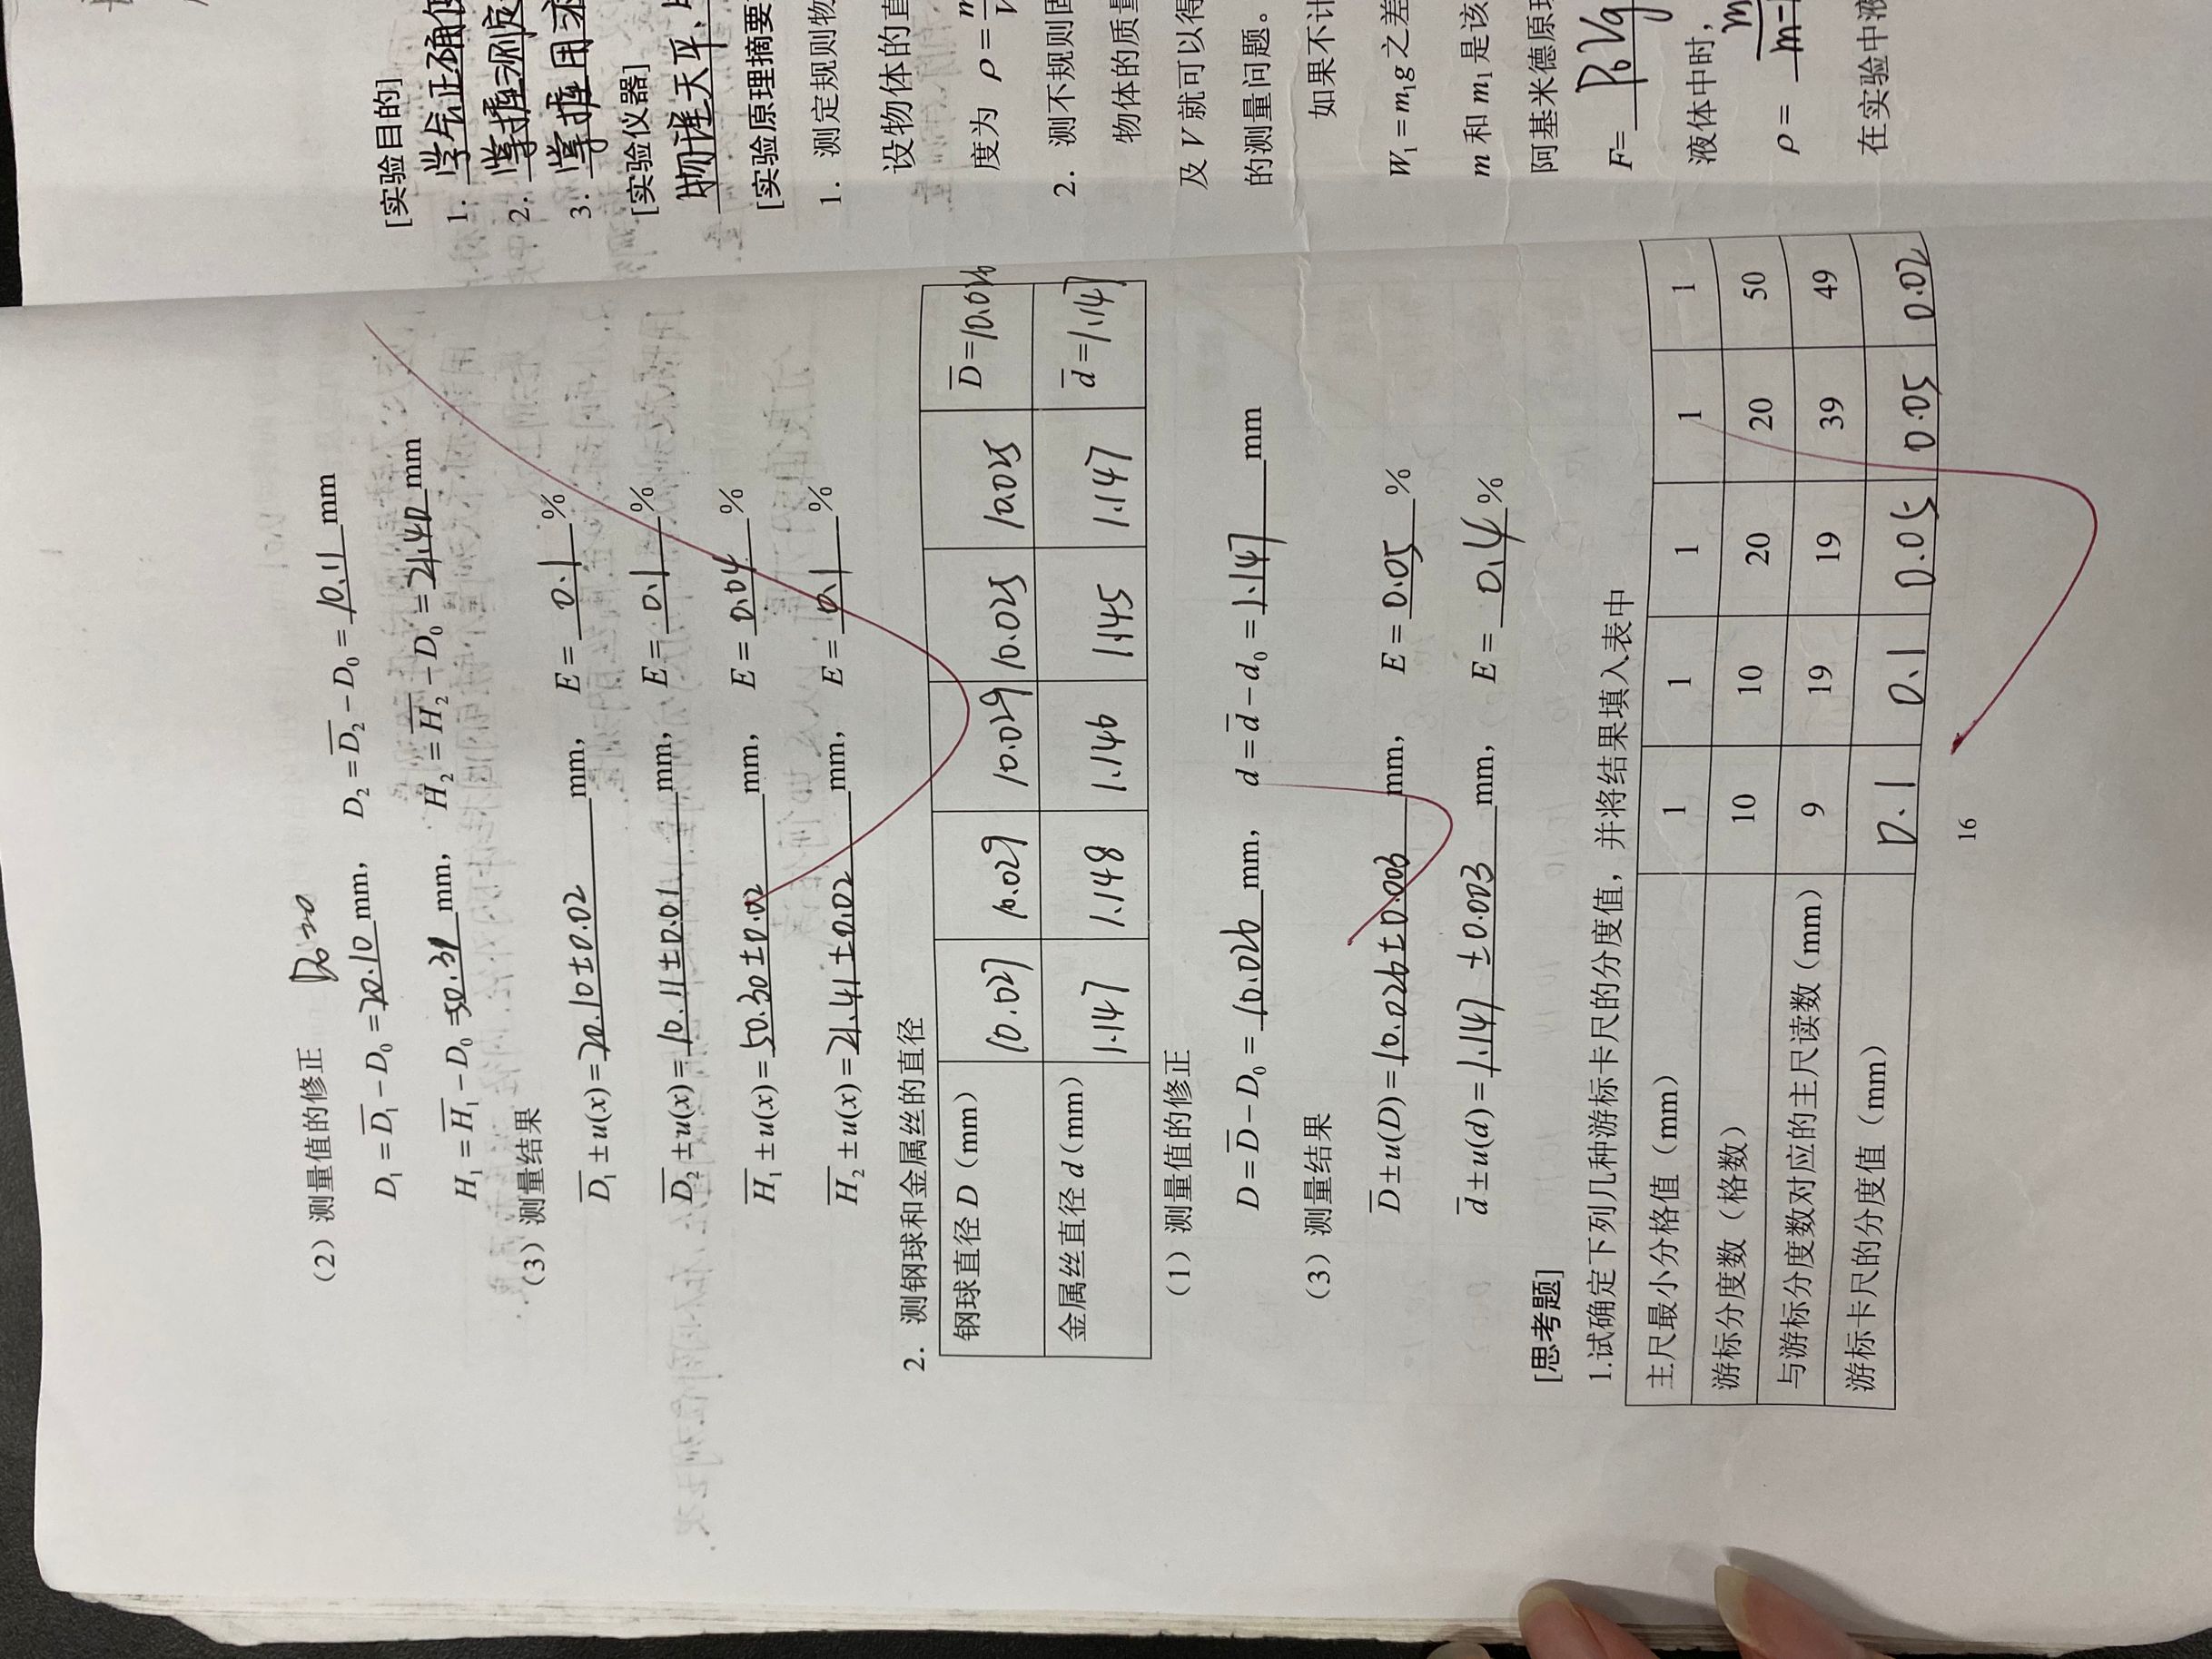 （2）测量值的修正 D₀=0
D₁ = D̅₁ − D₀ = 20.10 mm， D₂ = D̅₂ − D₀ = 10.11 mm
H₁ = H̅₁ − D₀ = mm， H₂ = H̅₂ − D₀ = 21.40 mm
（3）测量结果
D̅₁ ± u(x) = 20.10±0.02 mm， E = 0.1 %
D̅₂ ± u(x) = 10.11±0.01 mm， E = 0.1 %
H̅₁ ± u(x) = 50.30±0.02 mm， E = 0.04 %
H̅₂ ± u(x) = 21.41±0.02 mm， E = 0.1 %
2．测钢球和金属丝的直径
钢球直径 D（mm） 10.027 10.029 10.029 10.025 10.025 D̅=10.026
金属丝直径 d（mm） 1.147 1.148 1.146 1.145 1.147 d̅=1.147
（1）测量值的修正
D = D̅ − D₀ = 10.026 mm， d = d̅ − d₀ = 1.147 mm
（3）测量结果
D̅ ± u(D) = 10.026±0.003 mm， E = 0.05 %
d̅ ± u(d) = 1.147 ±0.003 mm， E = 0.4 %
[思考题]
1.试确定下列几种游标卡尺的分度值，并将结果填入表中
主尺最小分格值（mm） 1 1 1 1 1
游标分度数（格数） 10 10 20 20 50
与游标分度数对应的主尺读数（mm） 9 19 19 39 49
游标卡尺的分度值（mm） 0.1 0.1 0.05 0.05 0.02
16
[实验目的]
1. 学会正确
2. 掌握测定
3. 掌握用
[实验仪器]
物理天平、
[实验原理摘要
1．测定规则物
设物体的直
度为 ρ =
2．测不规则固
物体的质量
及 V 就可以得
的测量问题。
如果不计
W₁ = m₁g 之差
m 和 m₁ 是该
阿基米德原理
F= ρ₀Vg
液体中时，
ρ =
在实验中液